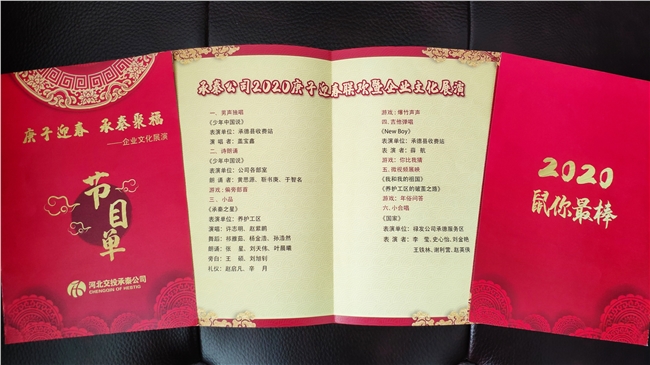 庚子迎春 承泰聚福
——企业文化展演
节目单
河北交投承秦公司
CHENGQIN OF HEBTIG
承秦公司2020庚子迎春联欢暨企业文化展演
一、美声独唱
《少年中国说》
表演单位：承德县收费站
演 唱 者：盖宝鑫
二、诗朗诵
《少年中国说》
表演单位：公司各部室
朗 诵 者：黄思源、靳书庚、于智名
游戏：偷害部首
三、小品
《承秦之星》
表演单位：养护工区
演唱：许志明、赵紫鹏
舞蹈：祁雅茹、杨金浩、孙浩然
朗诵：张 星、刘天伟、叶晨曦
旁白：王 硕、刘旭钊
礼仪：赵启凡、辛 月
游戏：爆竹声声
四、吉他弹唱
《New Boy》
表演单位：承德县收费站
表 演 者：薛 航
游戏：你比我猜
五、微视频展映
《我和我的祖国》
《养护工区的破茧之旅》
游戏：年俗问答
六、小合唱
《国家》
表演单位：禄发公司承德服务区
表 演 者：李 莹、史心怡、刘金艳
王铁林、谢利雷、赵英侠
2020
鼠你最棒